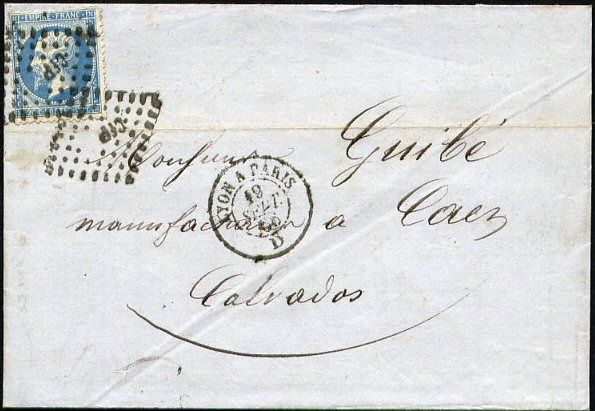 EMPIRE FRANC
Monsieur Guibé
manufacturier à Caen
Calvados
LYON A PARIS
19
SEPT
D